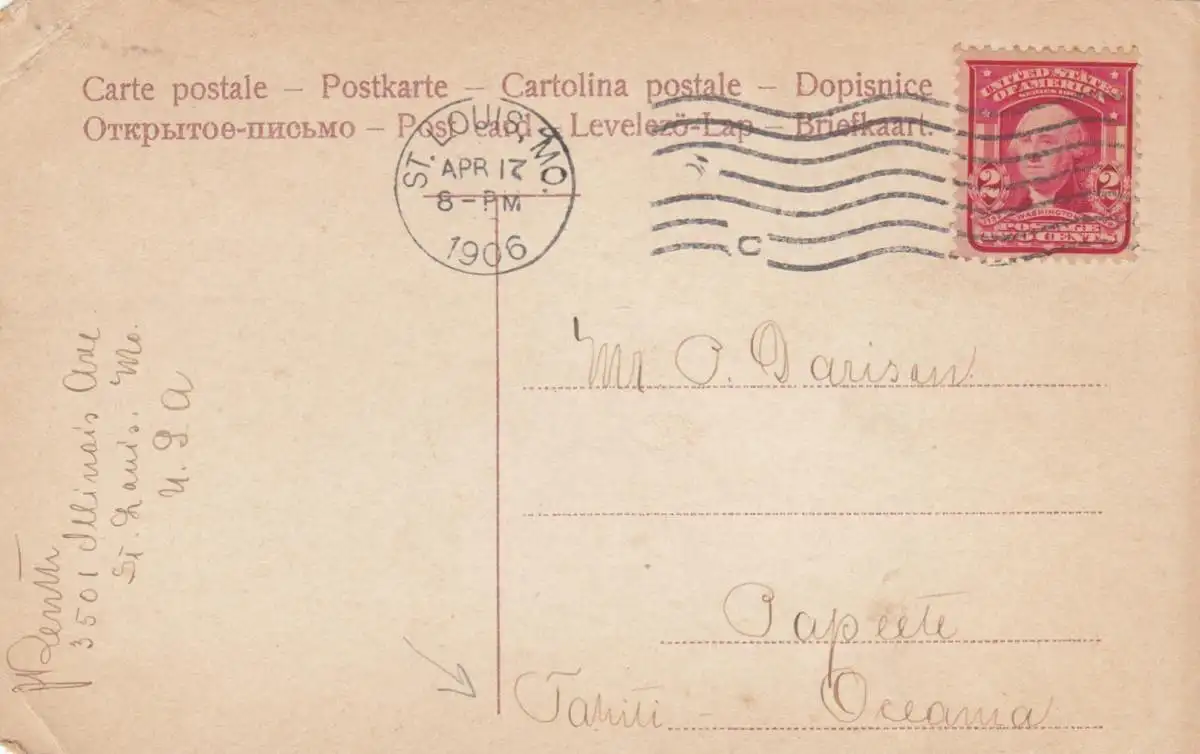 Carte postale – Postkarte – Cartolina postale – Dopisnice
Открытое-письмо – Post card – Levelező-Lap – Briefkaart.
ST. LOUIS, MO.
APR 17
8 – PM
1906
C
UNITED STATES
OF AMERICA
2 2
WASHINGTON
POSTAGE
TWO CENTS
Mr. O. Darisen
Papeete
Tahiti – Oceania
3501 Illinois Ave
St. Louis. Mo.
U. S A